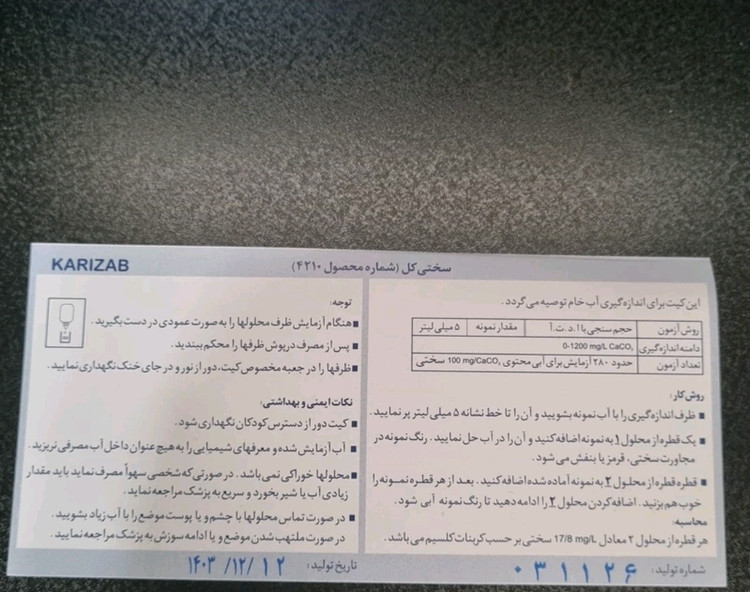 KARIZAB
سختی کل (شماره محصول ۴۲۱۰)
این کیت برای اندازه‌گیری آب خام توصیه می‌گردد.
روش آزمون حجم سنجی با ا.د.ت.آ مقدار نمونه ۵ میلی لیتر
دامنه اندازه‌گیری 0-1200 mg/L CaCO₃
تعداد آزمون حدود ۲۸۰ آزمایش برای آبی محتوی 100 mg/CaCO₃ سختی
روش کار:
■ ظرف اندازه‌گیری را با آب نمونه بشویید و آن را تا خط نشانه ۵ میلی لیتر پر نمایید.
■ یک قطره از محلول ۱ به نمونه اضافه کنید و آن را در آب حل نمایید. رنگ نمونه در
مجاورت سختی، قرمز یا بنفش می‌شود.
■ قطره قطره از محلول ۲ به نمونه آماده شده اضافه کنید. بعد از هر قطره نمونه را
خوب هم بزنید. اضافه کردن محلول ۲ را ادامه دهید تا رنگ نمونه آبی شود.
محاسبه:
هر قطره از محلول ۲ معادل 17/8 mg/L سختی بر حسب کربنات کلسیم می‌باشد.
شماره تولید: ۰۳۱۱۲۶
توجه:
■ هنگام آزمایش ظرف محلولها را به صورت عمودی در دست بگیرید.
■ پس از مصرف درپوش ظرفها را محکم ببندید.
■ ظرفها را در جعبه مخصوص کیت، دور از نور و در جای خنک نگهداری نمایید.
نکات ایمنی و بهداشتی:
■ کیت دور از دسترس کودکان نگهداری شود.
■ آب آزمایش شده و معرفهای شیمیایی را به هیچ عنوان داخل آب مصرفی نریزید.
■ محلولها خوراکی نمی‌باشد. در صورتی که شخصی سهواً مصرف نماید باید مقدار
زیادی آب یا شیر بخورد و سریع به پزشک مراجعه نماید.
■ در صورت تماس محلولها با چشم و یا پوست موضع را با آب زیاد بشویید.
در صورت ملتهب شدن موضع و یا ادامه سوزش به پزشک مراجعه نمایید.
تاریخ تولید: ۱۴۰۳/۱۲/۱۲